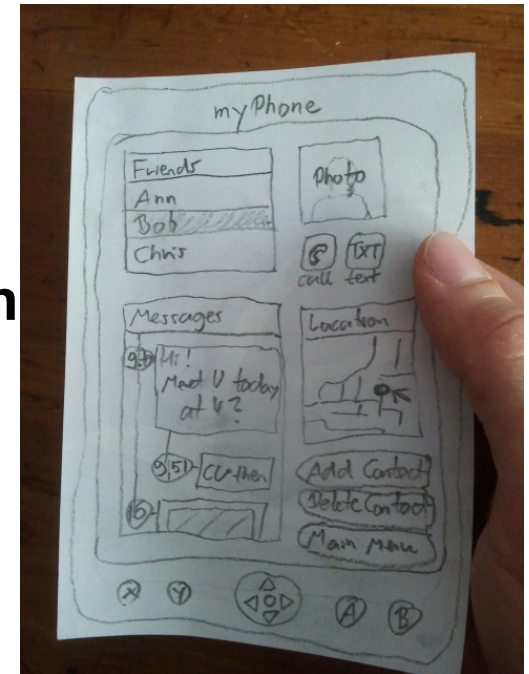 myPhone
Friends
Ann
Bob
Chris
Photo
TXT
call text
Messages
Hi!
Meet U today
at 4?
9:51
CU then
Location
Add Contact
Delete Contact
Main Menu
X Y A B
n